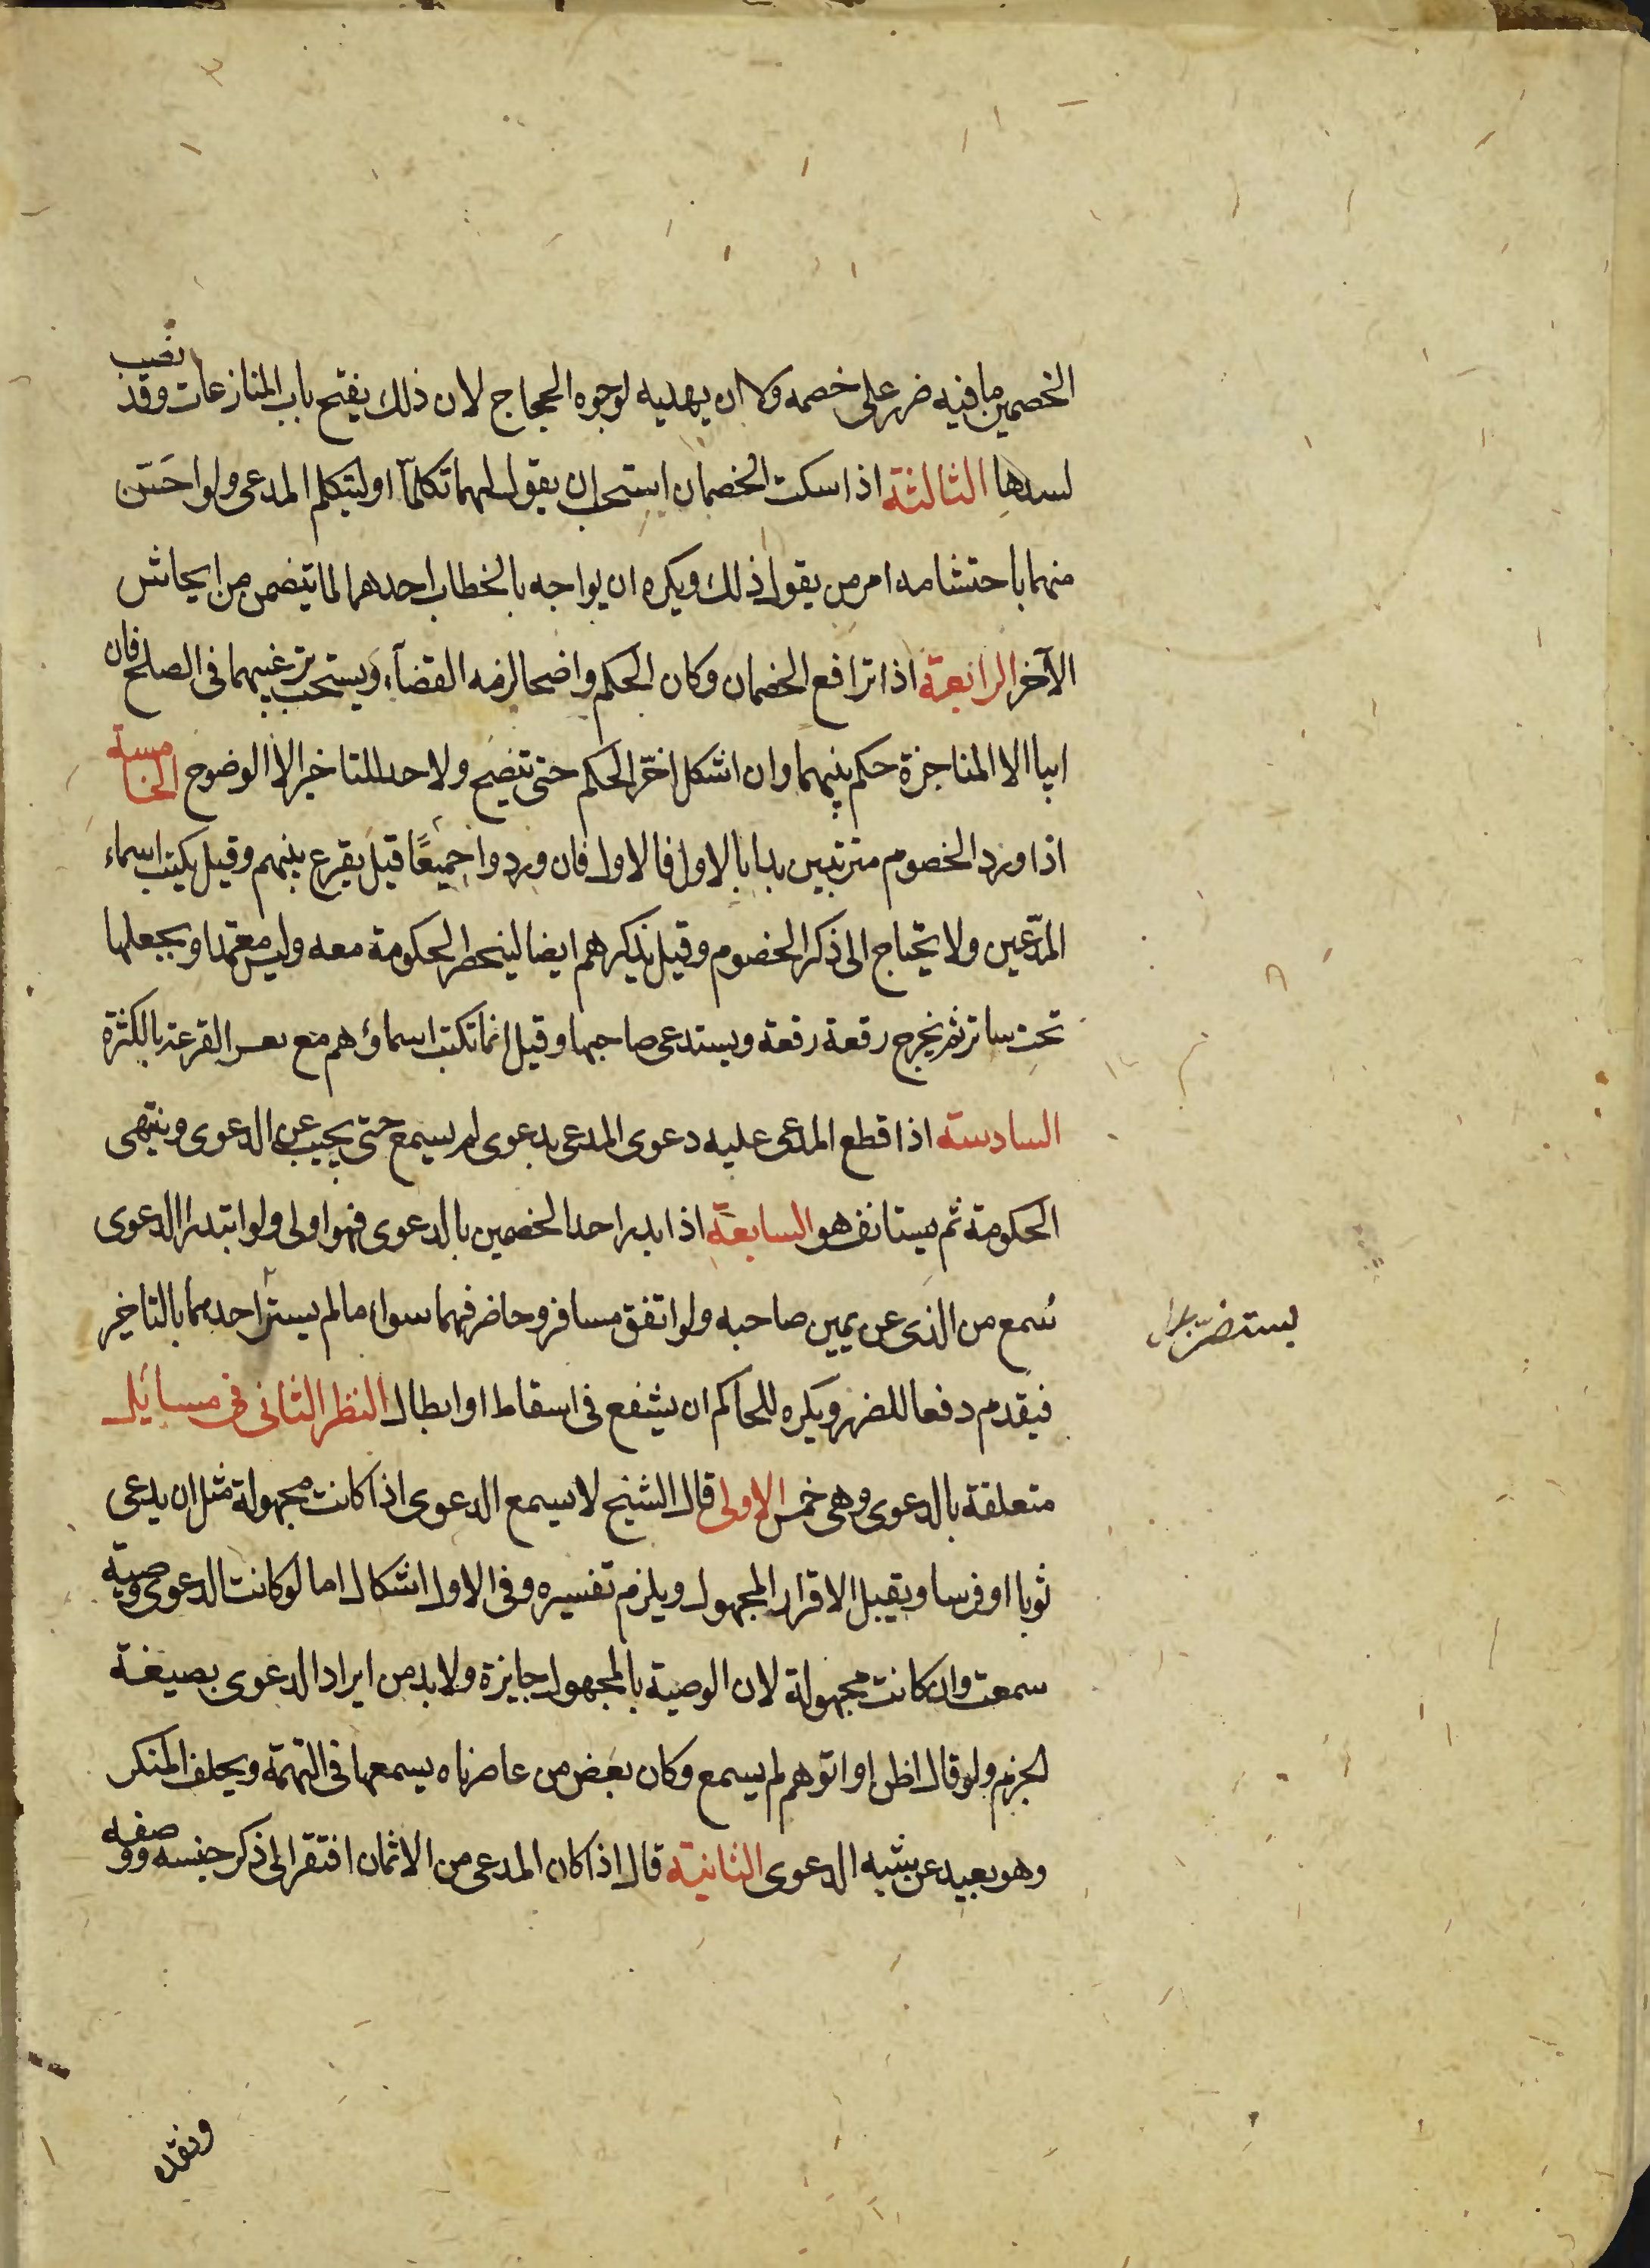 الخصمين ما فيه ضرر على خصمه ولا ان يهديه لوجوه الحجاج لان ذلك يفتح باب المنازعات وقد نصب
لسدها الثالثة اذا سكت الخصمان استحب ان يقول لهما تكلمآ او ليتكلم المدعى ولو احَسّ
منهما باحتشامه امر من يقول ذلك ويكره ان يواجه بالخطاب احدهما لما يتضمن من ايحاش
الآخر الرابعة اذا ترافع الخصمان وكان الحكم واضحا لزمه القضآء ويستحب ترغيبهما فى الصلح فان
ابيا الا المناجزة حكم بينهما وان اشكل اخّر الحكم حتى يتضح ولا حد للتاخير الا الوضوح الخامسة
اذا ورد الخصوم مترتبين بدا بالاول فالاول فان وردوا جميعًا قيل يقرع بينهم وقيل يكتب اسماء
المدّعين ولا يحتاج الى ذكر الخصوم وقيل يذكرهم ايضا ليتحضر الحكومة معه وليس معتمدا ويجعلها
تحت ساتر ثم يخرج رقعة رقعة ويستدعى صاحبها وقيل انما تكتب اسماؤهم مع تعسر القرعة بالكثرة
السادسة اذا قطع المدعى عليه دعوى المدعى بدعوى لم يسمع حتى يجيب عن الدعوى وينتهى
الحكومة ثم يستانف هو السابعة اذا بدر احد الخصمين بالدعوى فهو اولى ولو ابتدرا الدعوى
سُمع من الذى عن يمين صاحبه ولو اتفق مسافر وحاضر فهما سواء ما لم يستر احدهما بالتاخير
يستضر
فيقدم دفعا للضرر ويكره للحاكم ان يشفع فى اسقاط او ابطال النظر الثانى فى مسائل
متعلقة بالدعوى وهى خمس الاولى قال الشيخ لا يسمع الدعوى اذا كانت مجهولة مثل ان يدعى
ثوبا او فرسا ويقبل الاقرار المجهول ويلزم تفسيره وفى الاول اشكال اما لو كانت الدعوى وصية
سمعت وان كانت مجهولة لان الوصية بالمجهول جايزة ولا بد من ايراد الدعوى بصيغة
الجزم ولو قال اظن او اتوهم لم يسمع وكان بعض من عاصرناه يسمعها فى التهمة ويحلف المنكر
وهو بعيد عن شبه الدعوى الثانية قال اذا كان المدعى من الاثمان افتقر الى ذكر جنسه ووصفه
ونقده